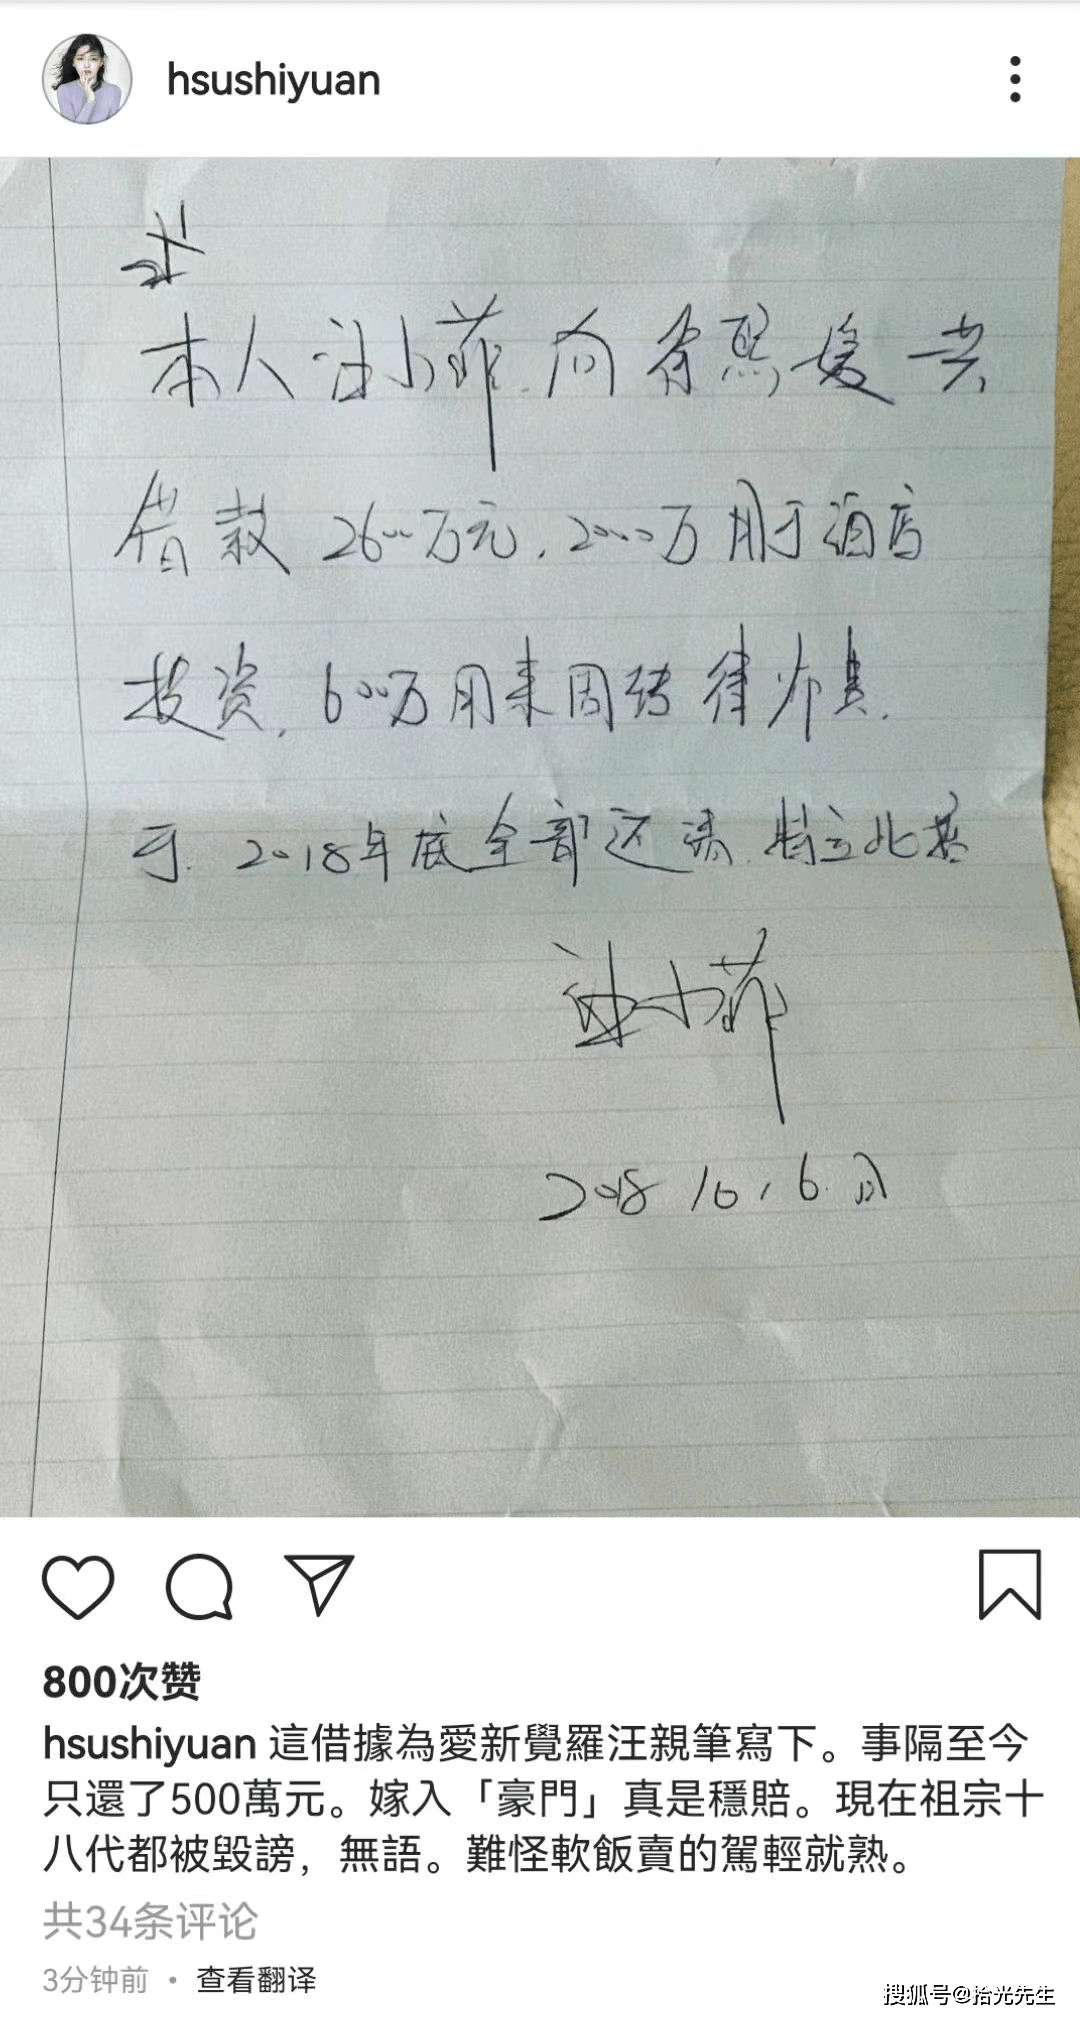 hsushiyuan
本人汪小菲向徐熙媛共
借款2600万元，2000万用于酒店
投资，600万用来周转律师费，
于2018年底全部还清，特立此据
汪小菲
2018 10，6
800次赞
hsushiyuan 這借據為愛新覺羅汪親筆寫下。事隔至今
只還了500萬元。嫁入「豪門」真是穩賠。現在祖宗十
八代都被毀謗，無語。難怪軟飯賣的駕輕就熟。
共34条评论
3分钟前 • 查看翻译
搜狐号@拾光先生